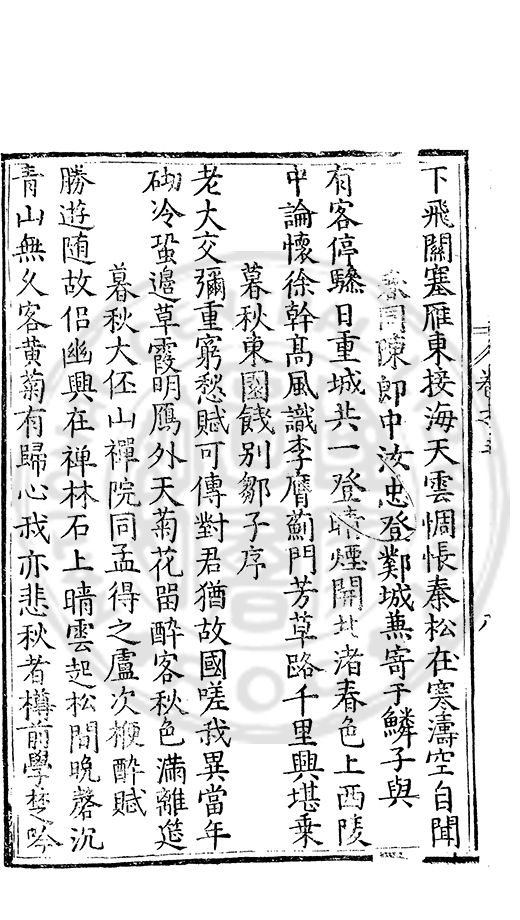 下飛關塞雁東接海天雲惆悵秦松在寒濤空自聞
春同陳郎中汝忠登鄴城兼寄于鱗子與
有客停驂日重城共一登晴煙開北渚春色上西陵
中論懷徐幹髙風識李膺薊門芳草路千里興堪乗
暮秋東園餞别鄒子序
老大交彌重窮愁賦可傳對君猶故國嗟我異當年
砌冷蛩邊草霞明鴈外天菊花畱醉客秋色滿離筵
暮秋大伾山禪院同孟得之盧次楩醉賦
勝遊随故侣幽興在禅林石上晴雲起松間晩磬沉
青山無久客黄菊有歸心我亦悲秋者樽前學楚吟